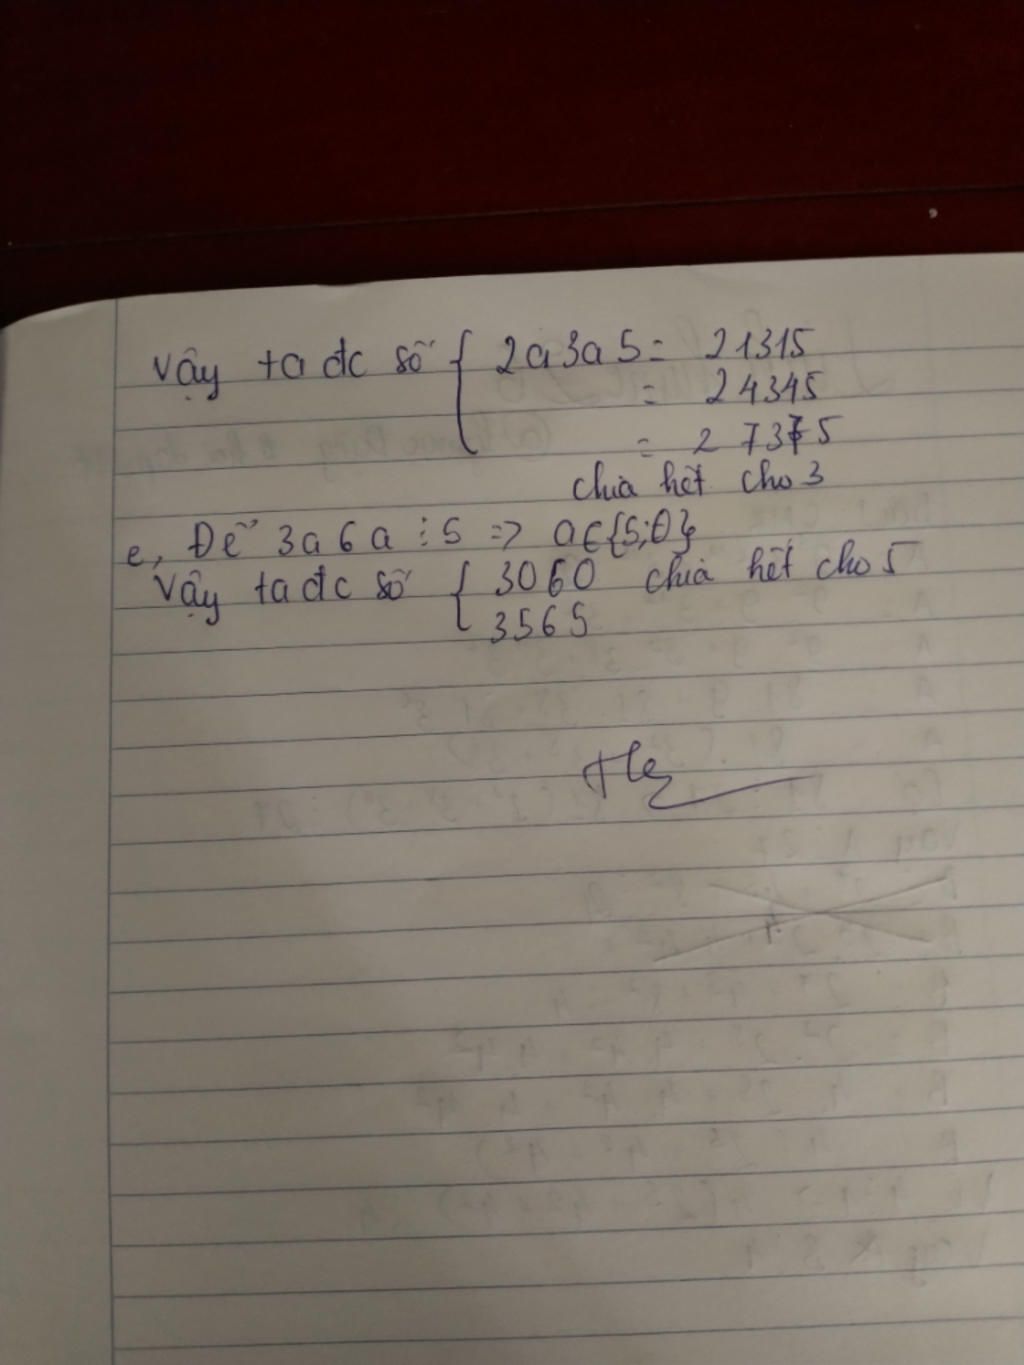 Vậy ta đc số { 2a3a5 = 21315
= 24345
= 27375
chia hết cho 3
e, Để 3a6a ⋮ 5 => a∈{5;0}
Vậy ta đc số { 3060 chia hết cho 5
3565